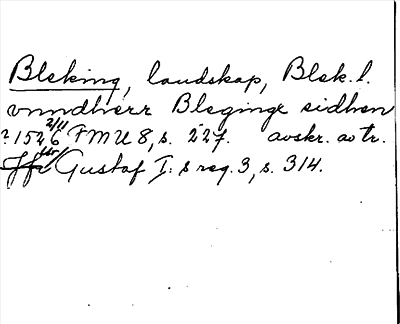 Bleking, landskap, Blek. l.
vnndherr Bleginge sidhen
? 1526 2/11 FMU 8, s. 227. avskr. av tr.
Jfr Gustaf I:s reg. 3, s. 314.